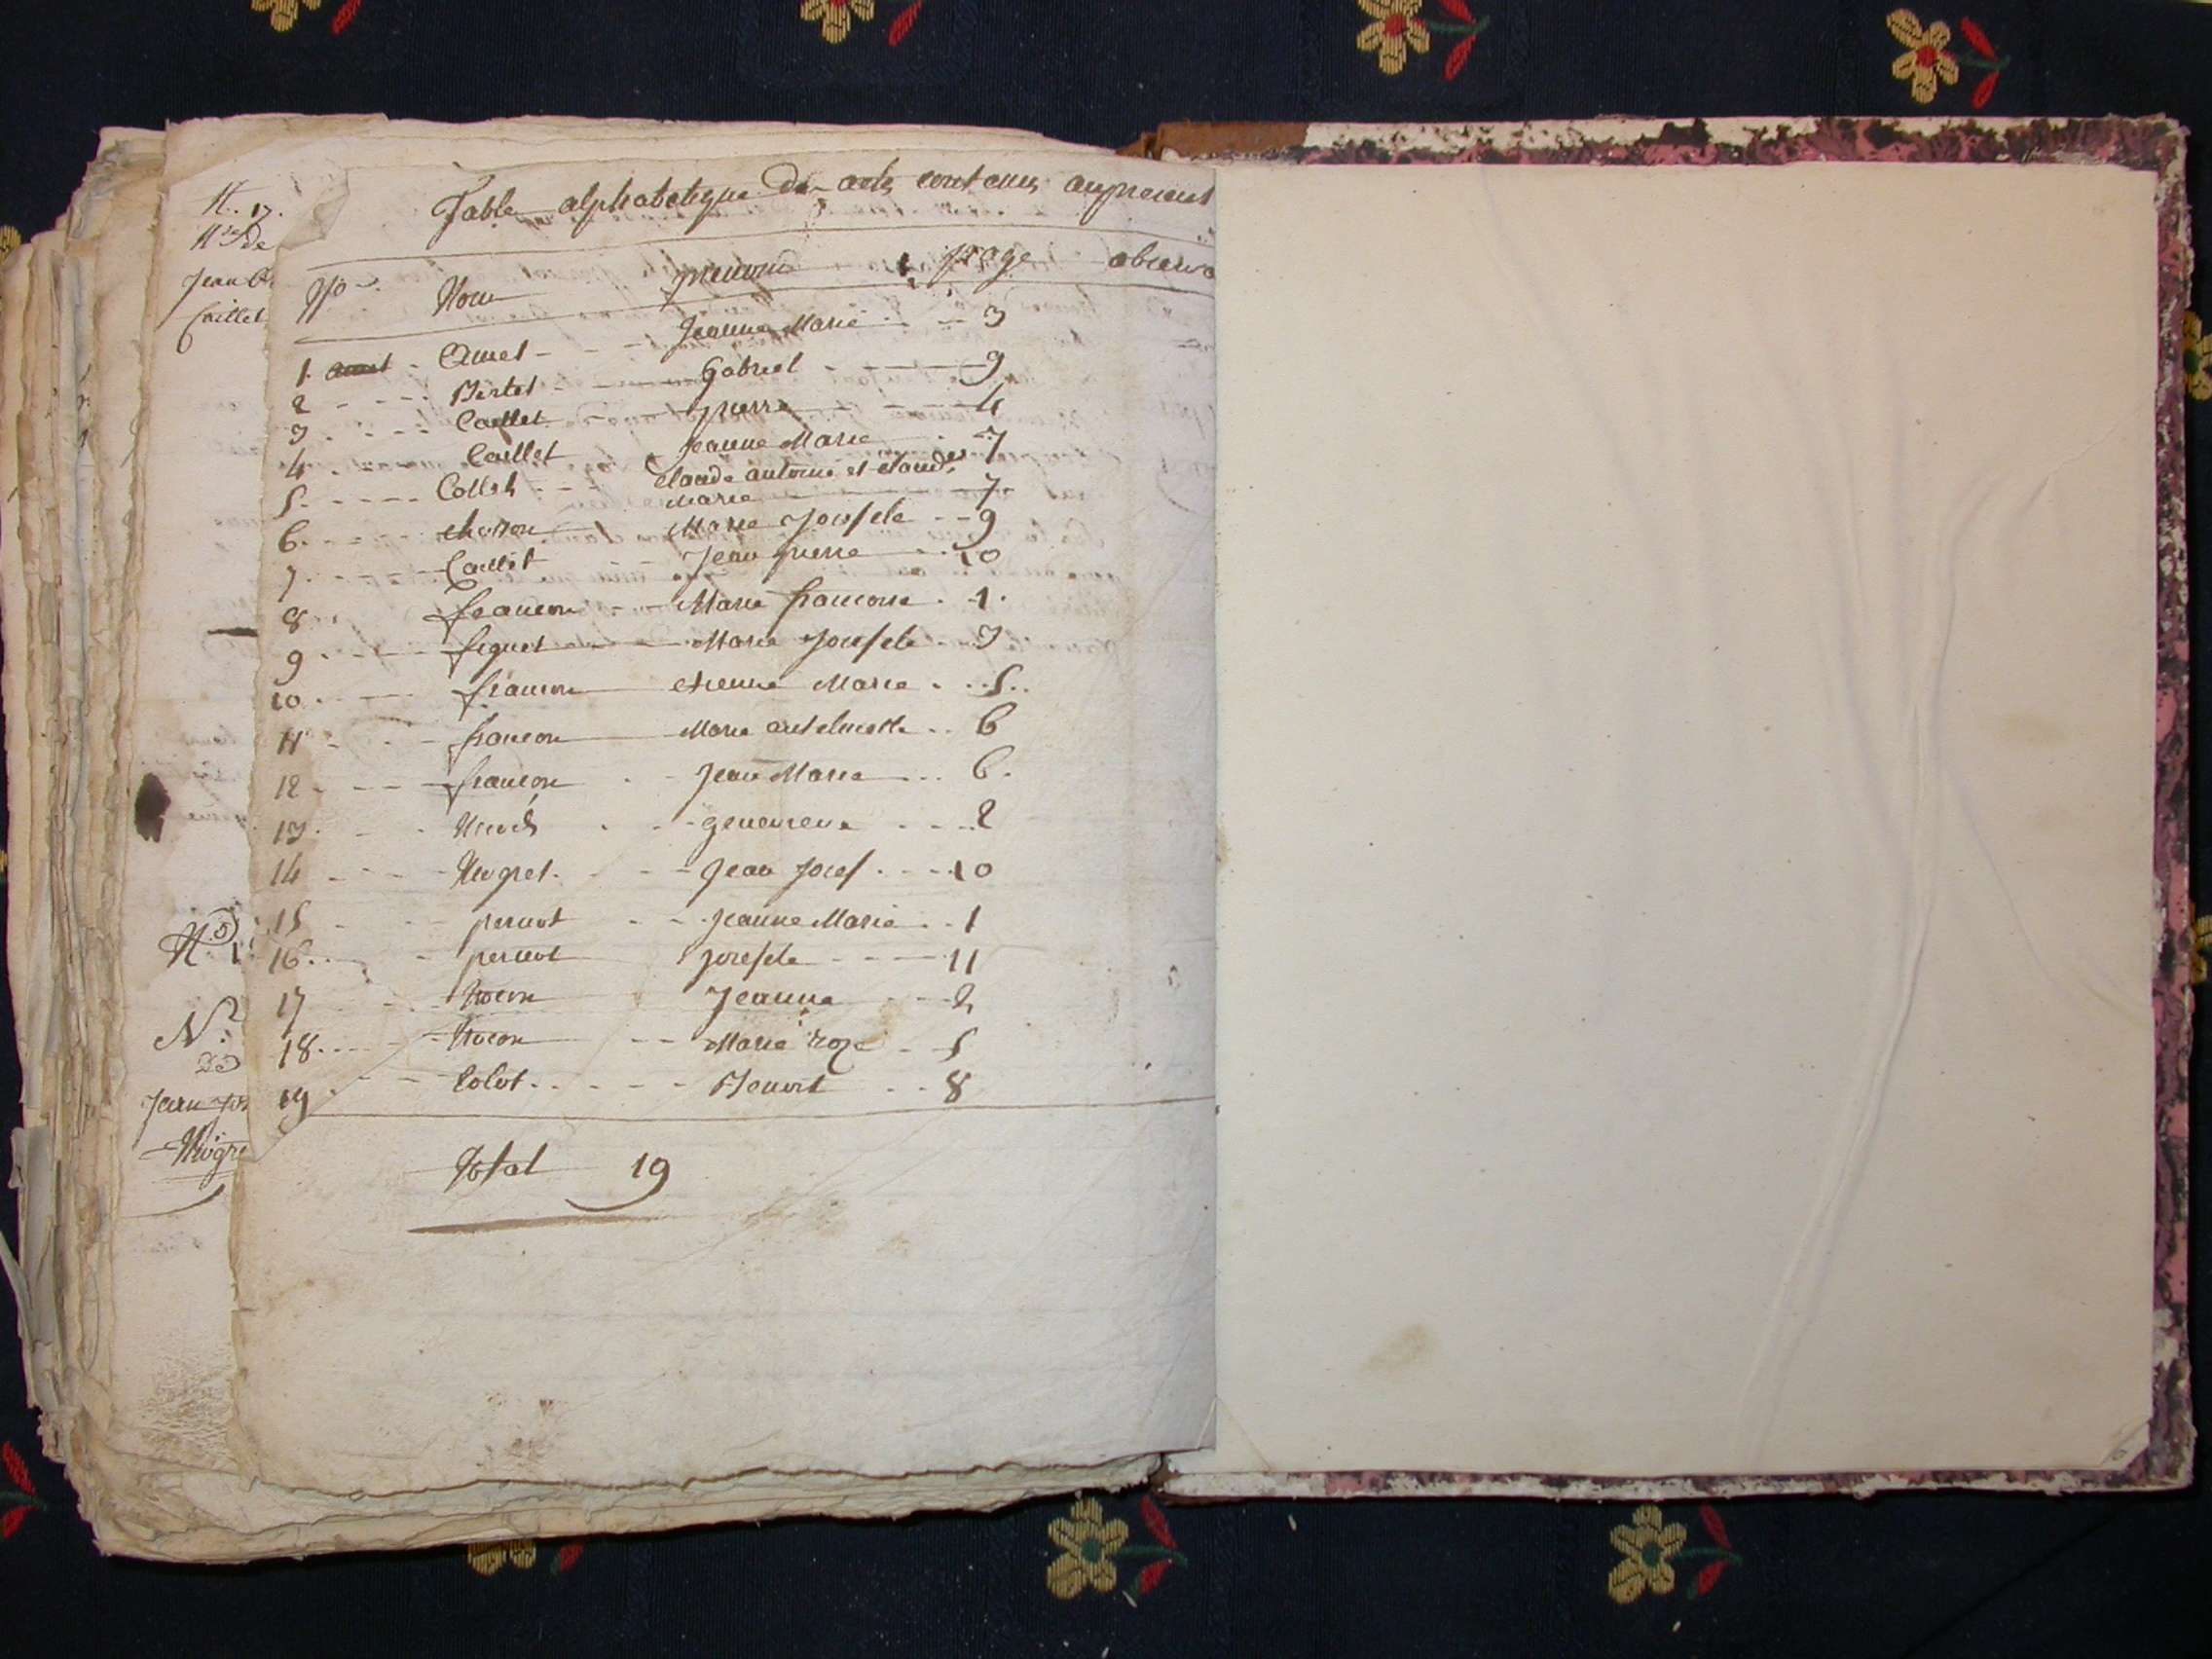 N. 17.
Nce de
Jean
Caillet
Table alphabetique des actes contenus au present
No. Nom prenom page observa
1. Amet - - - Jeanne Marie - - 3
2 - - - Bertet - - Gabriel - - 9
3 - - - Caillet - - pierre - - - 4
4 - Caillet - Jeanne Marie - 7
5 - - - - Collet - - - Claude antoine et claude
Marie - 7
6 - - - Marie Josefete - - 9
7 - - - Caillet - Jean pierre - - 10
8 - - francon - - Marie francoise . 1.
9 - - - figuet - - Marie Josefete - 3
10 - - - francon - etienne Marie . . 5..
11 - - - francon - Marie antelmette . . 6
12 - - - francon - - Jean Marie - . . 6.
13 - - - - - genevieve - - - 2
14 - - - Nugret - - - Jean Josef . - - 10
15 - - - peruot - - Jeanne Marie . . 1
16 . . - - peruot Josefete - - - 11
17 - - - Jeanne - - - 2
18 . - - - - - Marie roze - 5
19 - - - Colot . . - - - Benoit - - 8
Total 19
N.
N°
de
Jean